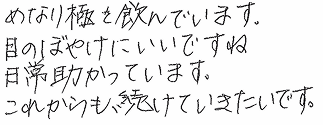 めなり極を飲んでいます。
目のぼやけにいいですね
日常助かっています。
これからも、続けていきたいです。